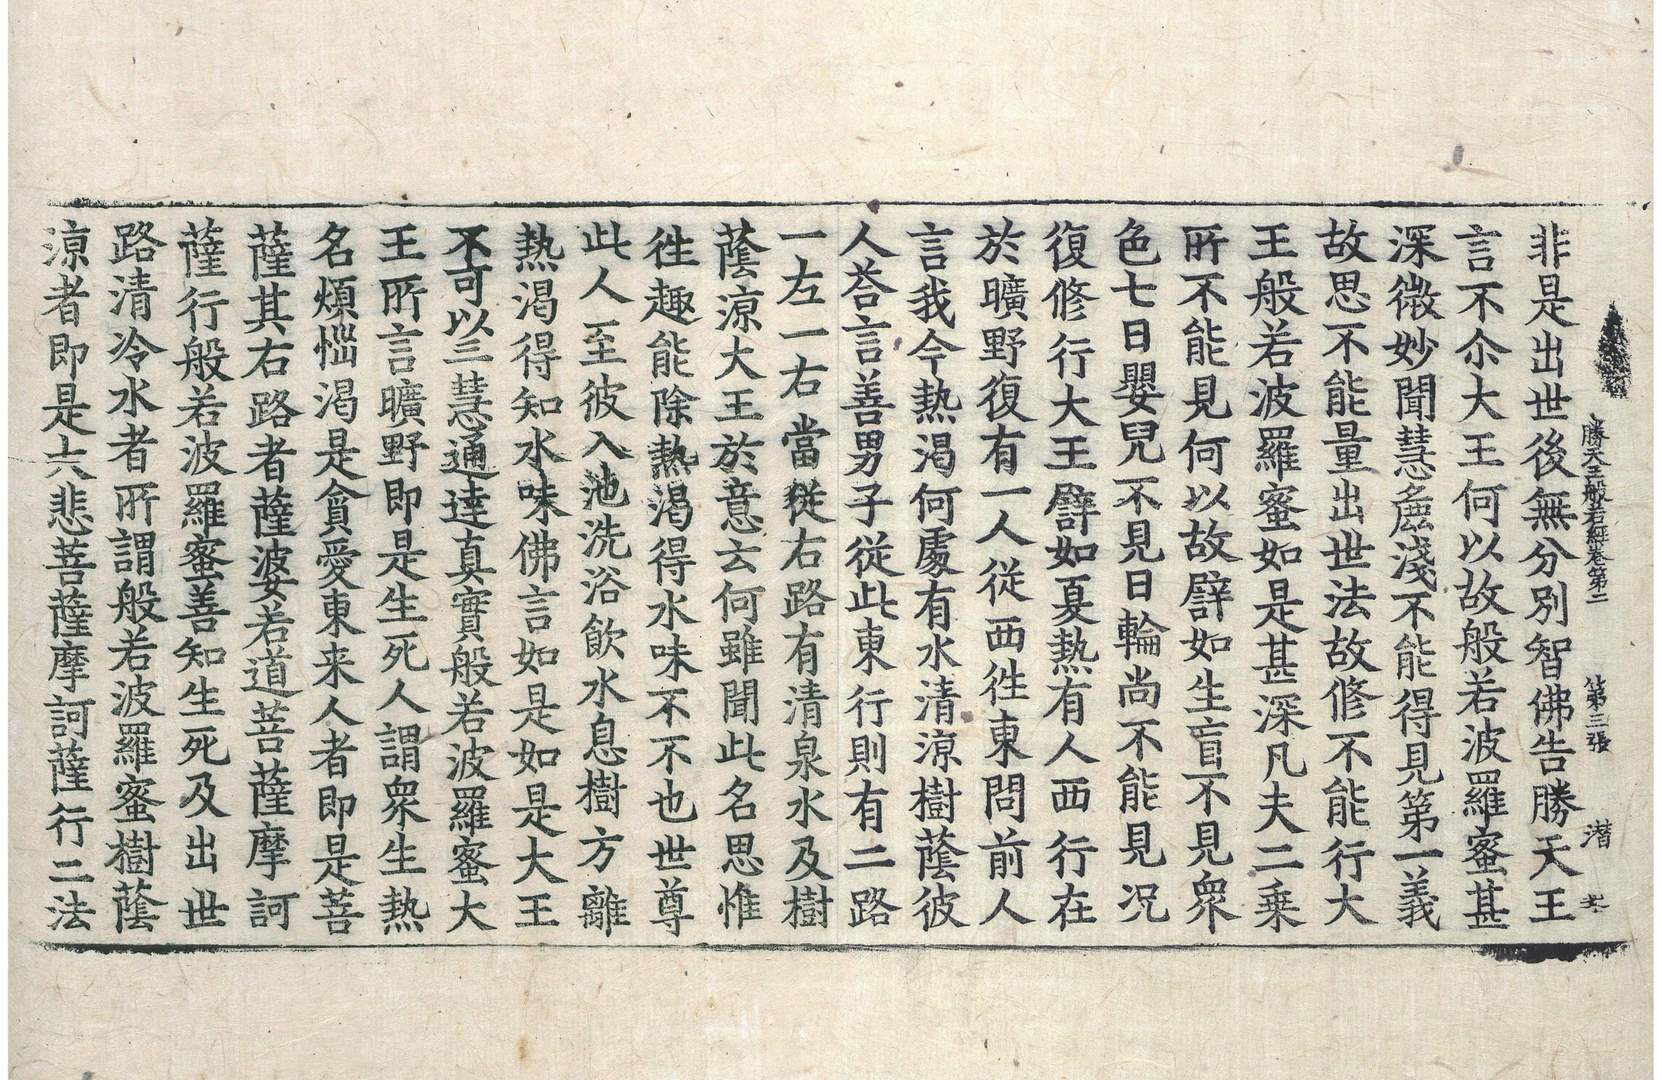 勝天王般若經卷第二 第三張 潜
非是出世後無分別智佛告勝天王
言不尒大王何以故般若波羅蜜甚
深微妙聞慧麁淺不能得見第一義
故思不能量出世法故修不能行大
王般若波羅蜜如是甚深凡夫二乗
所不能見何以故譬如生盲不見衆
色七日嬰兒不見日輪尚不能見況
復修行大王譬如夏熱有人西行在
於曠野復有一人從西徃東問前人
言我今熱渴何處有水清涼樹蔭彼
人荅言善男子從此東行則有二路
一左一右當從右路有清泉水及樹
蔭涼大王於意云何雖聞此名思惟
徃趣能除熱渴得水味不不也世尊
此人至彼入池洗浴飲水息樹方離
熱渴得知水味佛言如是如是大王
不可以三慧通達真實般若波羅蜜大
王所言曠野即是生死人謂衆生熱
名煩惱渴是貪愛東来人者即是菩
薩其右路者薩婆若道菩薩摩訶
薩行般若波羅蜜善知生死及出世
路清冷水者所謂般若波羅蜜樹蔭
涼者即是大悲菩薩摩訶薩行二法